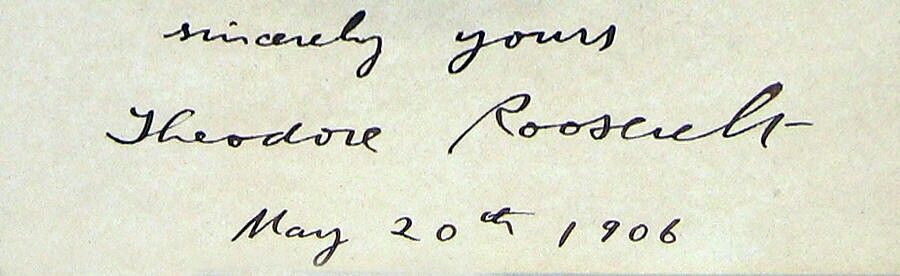 sincerely yours
Theodore Roosevelt
May 20th 1906